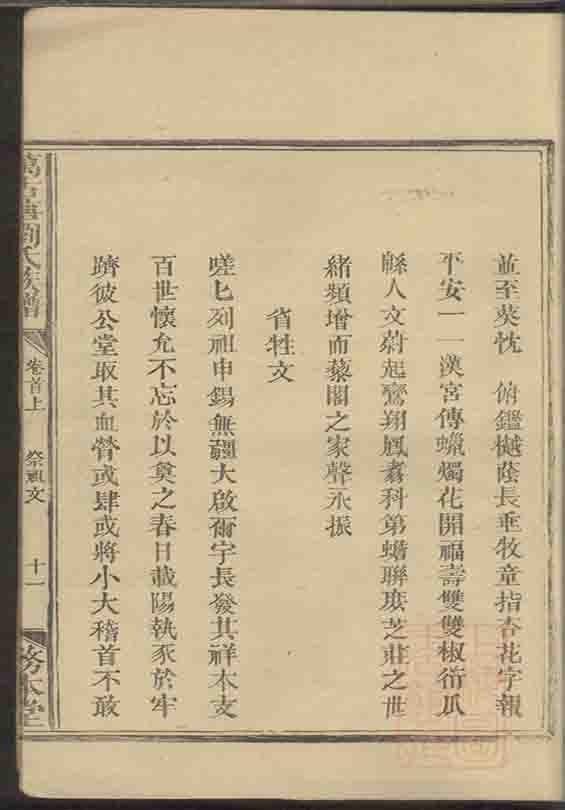 並至葵忱 俯鑑樾蔭長垂牧童指杏花字報
平安一一漢宮傳蠟燭花開福壽雙雙椒衍瓜
緜人文蔚起鸞翔鳳翥科第蟬聯琼芝莊之世
緒頻增而藜閣之家聲永振
省牲文
嗟匕列祖申錫無疆大啟爾宇長發其祥本支
百世懷允不忘於以奠之春日載陽執豕於牢
躋彼公堂取其血膋或肆或將小大稽首不敢
劉氏族譜
卷首上
祭祖文
十一
務本堂